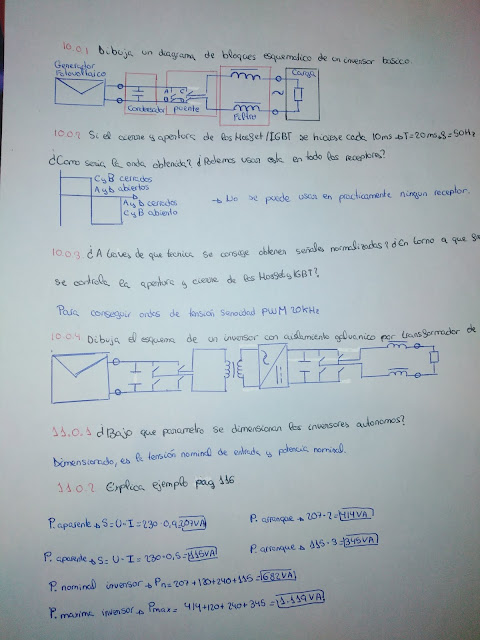 10.0.1 Dibuja un diagrama de bloques esquematico de un inversor basico.
Generador
Fotovoltaico
Condensador
puente
Filtro
Carga
10.0.2 Si el cierre y apertura de los Mosfet/IGBT se hiciese cada 10ms → T=20ms, f=50Hz
¿Como seria la onda obtenida? ¿Podemos usar esta en todo los receptores?
C y B cerrados
A y D abiertos
A y D cerrados
C y B abierto
→ No se puede usar en practicamente ningun receptor.
10.0.3 ¿A traves de que tecnica se consigue obtener señales normalizadas? ¿En torno a que
se controla la apertura y cierre de los Mosfet y IGBT?
Para conseguir ondas de tension senoidal PWM 20kHz
10.0.4 Dibuja el esquema de un inversor con aislamiento galvanico por transformador de
11.0.1 ¿Bajo que parametro se dimensionan los inversores autonomos?
Dimensionado, es la tensión nominal de entrada y potencia nominal.
11.0.2 Explica ejemplo pag 116
P. aparente → S=U·I=230·0,9=207VA P. arranque → 207·2=414VA
P. aparente → S=U·I=230·0,5=115VA P. arranque → 115·3=345VA
P. nominal inversor → Pn=207+120+240+115=682VA
P. maxima inversor → Pmax= 414+120+240+345=1.119VA